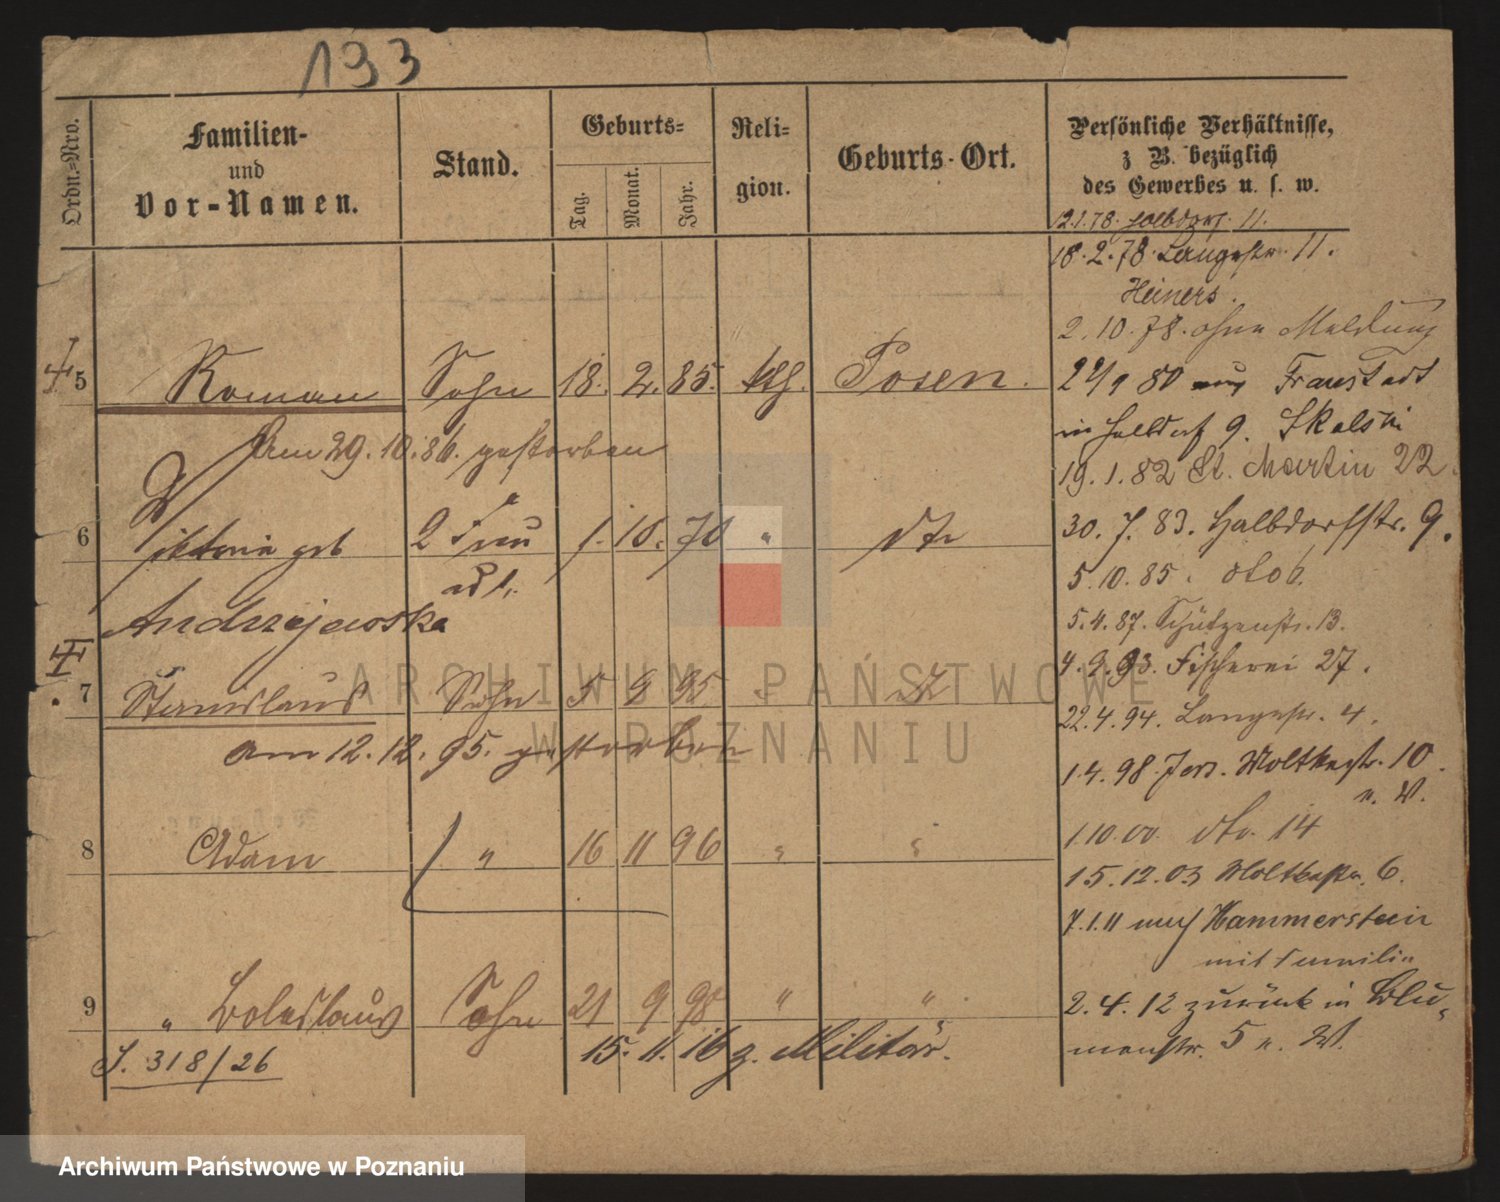 133
Ordn.-Nro.
Familien-
und
Vor-Namen.
Stand.
Geburts-
Tag.
Monat.
Jahr.
Reli-
gion.
Geburts-Ort.
Persönliche Verhältnisse,
z B. bezüglich
des Gewerbes u. s. w.
12.1.78. Halbdorf. 11.
18.2.78. Langestr. 11.
Heiners.
2.10.78. ohne Meldung
5 Roman Sohn 18. 2. 85. kth. Posen.
am 29.10.86. gestorben
9 80 aus Fraustadt
in Halbdorf 9. Skalski
19.1.82 St. Martin 22
6 Viktoria geb 2 Frau 1. 10. 70 " dto
adl.
Andrzejewska
30.7.83. Halbdorfstr. 9.
5.10.85.
5.4.87. Schützenstr. 13.
4.9.93. Fischerei 27.
7 Stanislaus Sohn 5 9 95
am 12.12.95. gestorben
22.4.94. Langestr. 4.
1.4.98. Jers. Moltkestr. 10.
u. W.
8 Adam " 16 11 96 " "
1.10.00. dto. 14
15.12.03 Moltkestr. 6.
7.1.11 nach Hammerstein
mit Familie
9 " Boleslaus Sohn 21 9 98 " "
15.11.16 z. Militär.
J. 318/26
2.4.12 zurück in Blu-
menstr. 5 u. W.
ARCHIWUM PAŃSTWOWE
W POZNANIU
Archiwum Państwowe w Poznaniu